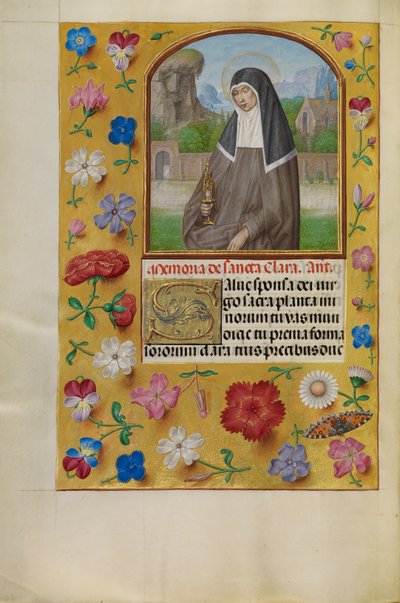 Memoria de Sancta Clara. Ant.
Salue sponsa dei uir
go sacra planta mi
norum tu vas mun
dicie tu prema forma
sororum clara tuis precibus duc